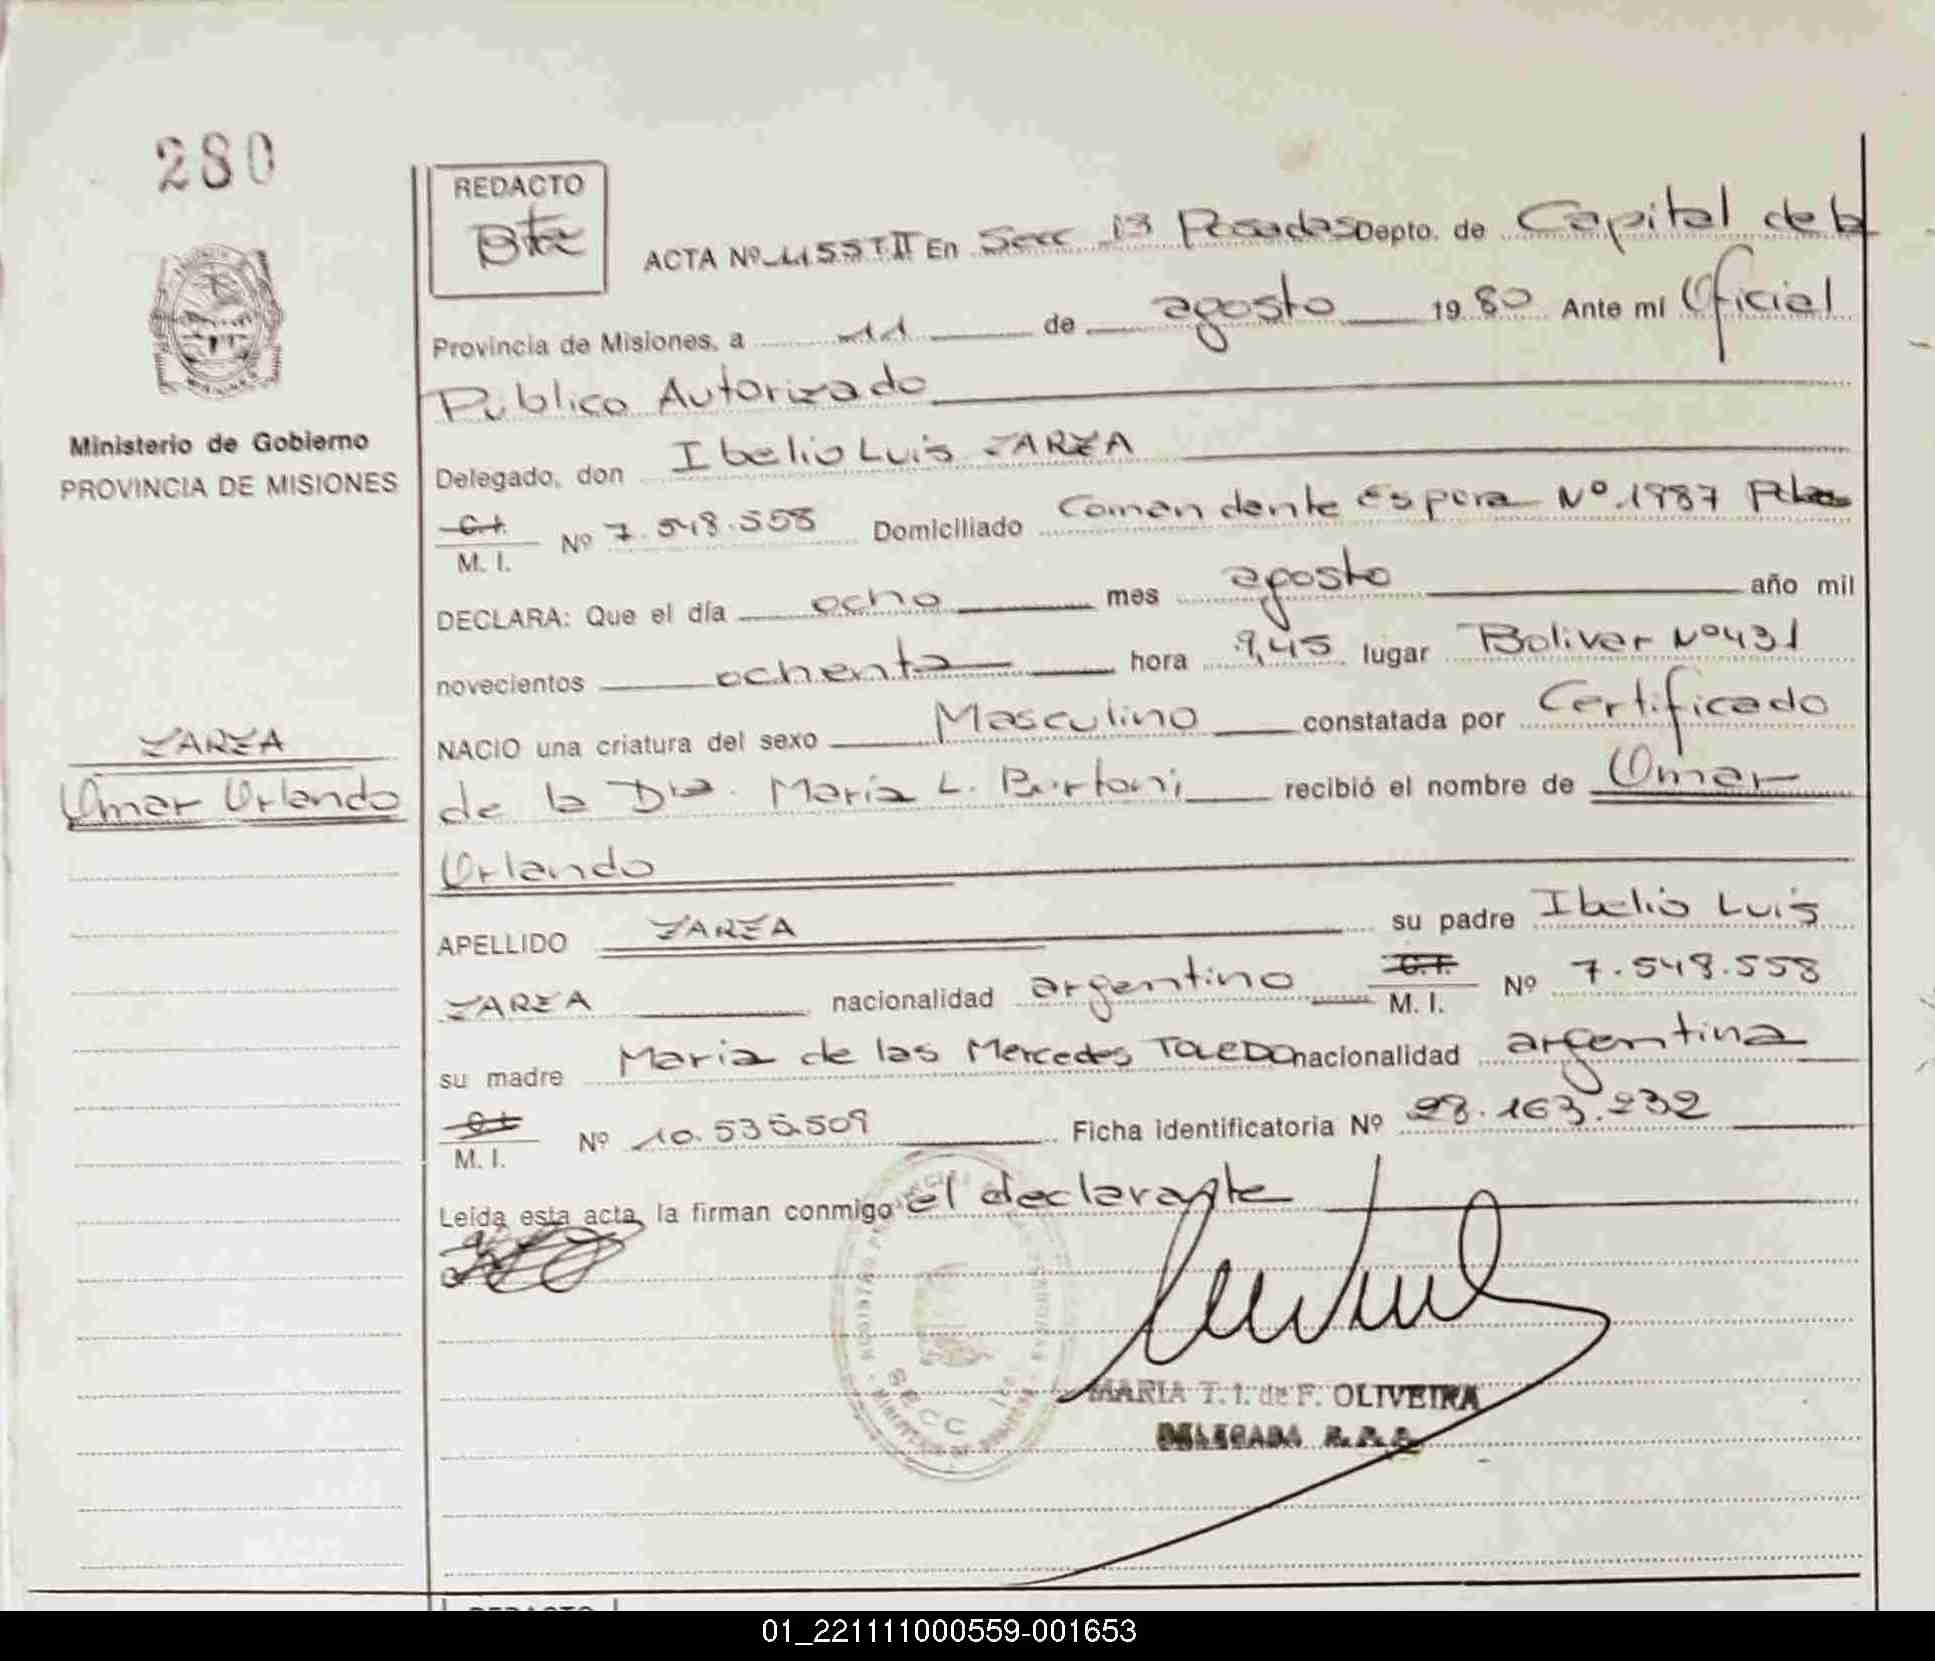 280
REDACTO
ACTA Nº 1155 T.II En Secc 13 Posadas Depto. de Capital de la
Provincia de Misiones, a 11 de agosto 1980 Ante mi Oficial
Publico Autorizado
Ministerio de Gobierno
PROVINCIA DE MISIONES
Delegado, don Ibelio Luis ZARZA
C.I.
M. I. Nº 7.548.558 Domiciliado Comandante Espora Nº 1987 Pdas
DECLARA: Que el día ocho mes agosto año mil
novecientos ochenta hora 9,45 lugar Bolivar Nº 431
NACIO una criatura del sexo Masculino constatada por Certificado
ZARZA
Omar Orlando
de la Dra. Maria L. Bertoni recibió el nombre de Omar
Orlando
APELLIDO ZARZA su padre Ibelio Luis
ZARZA nacionalidad argentino C.I. M. I. Nº 7.548.558
su madre Maria de las Mercedes TOLEDO nacionalidad argentina
C.I.
M. I. Nº 10.535.509 Ficha identificatoria Nº 28.163.232
Leída esta acta, la firman conmigo el declarante
SECC
MARIA T. I. de F. OLIVEIRA
DELEGADA R. P. P.
REDACTO
01_221111000559-001653